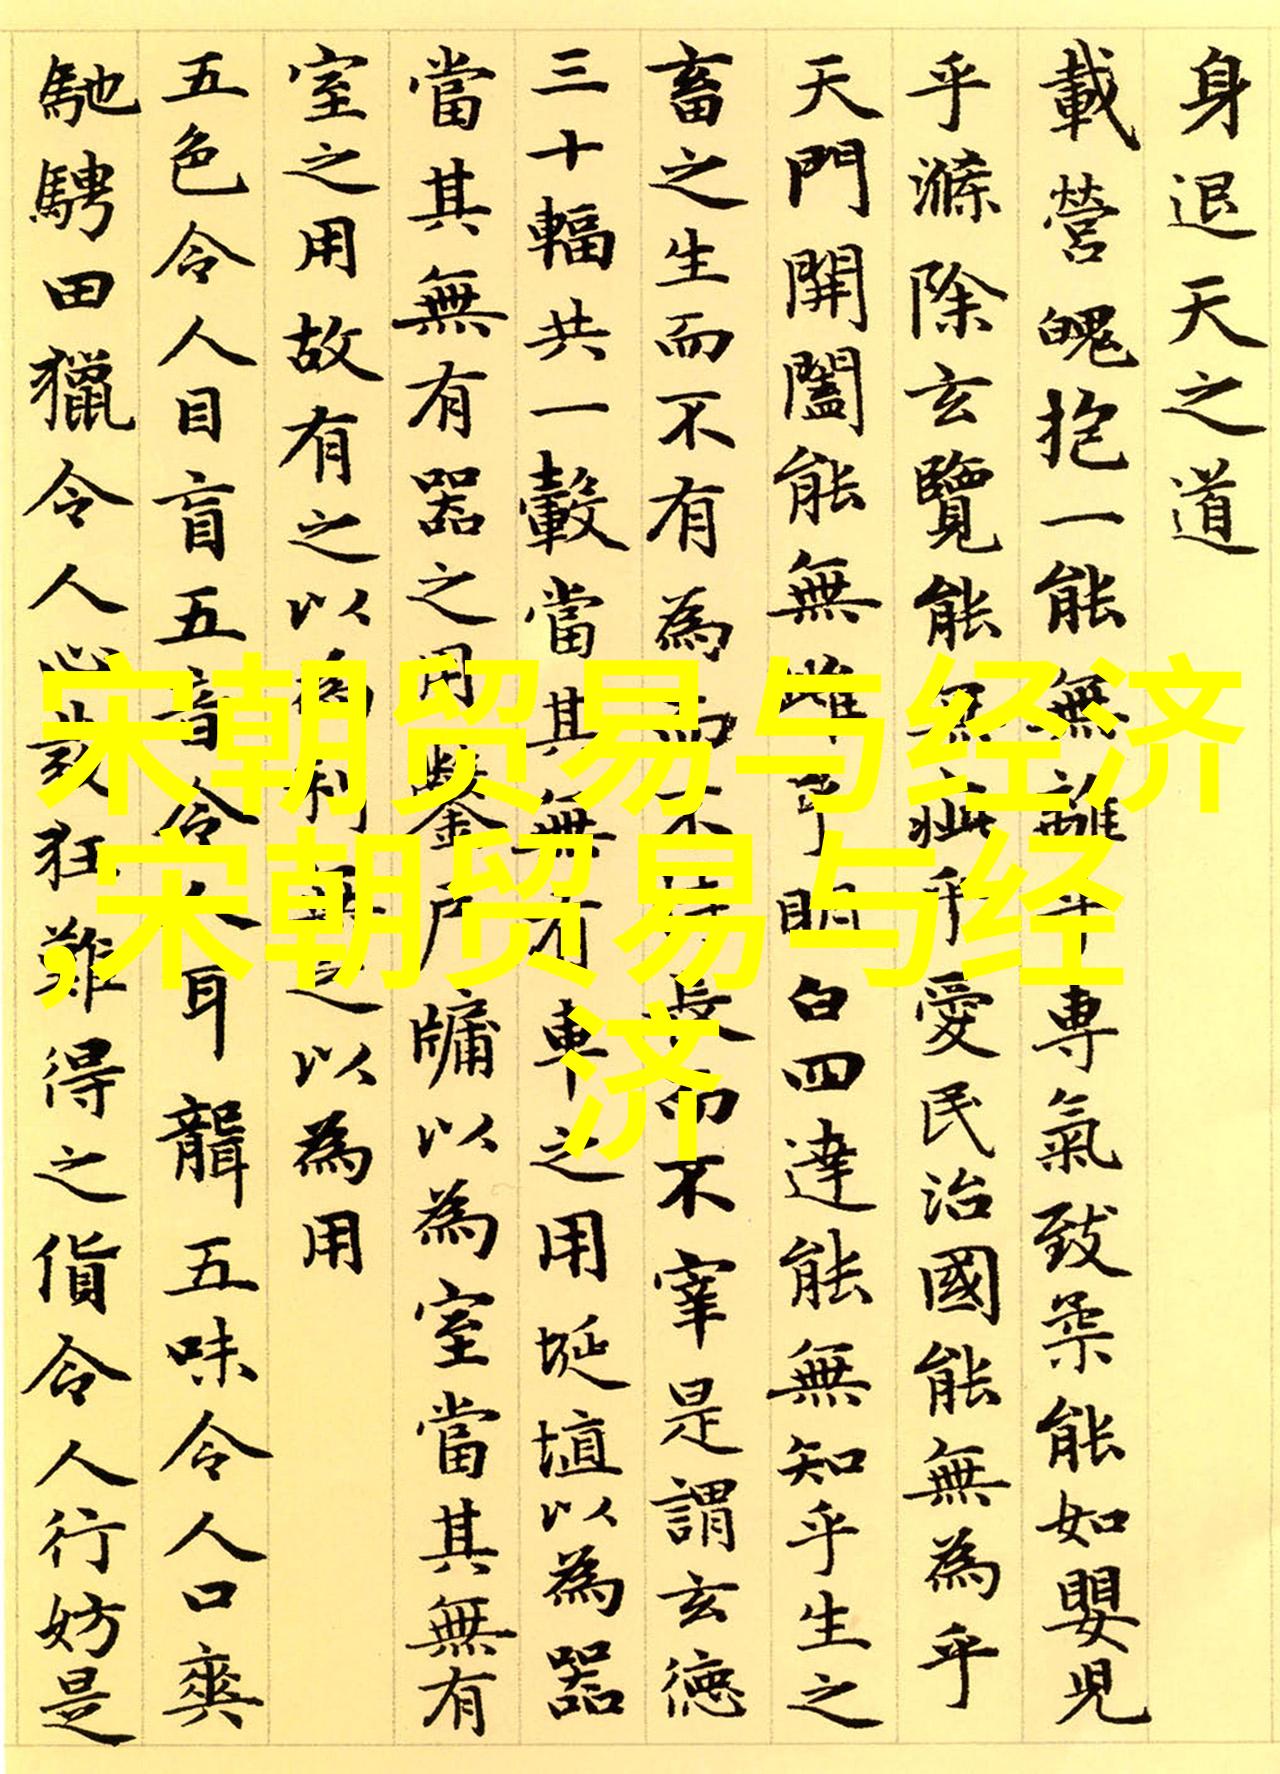 身退天之道
載營魄抱一能無離乎專氣致柔能如嬰児
乎滌除玄覽能無疵乎愛民治國能無為乎
天門開闔能無雌乎明白四達能無知乎生之
畜之生而不有為而不恃長而不宰是謂玄德
三十輻共一轂當其無有車之用埏埴以為器
當其無有器之用鑿戶牖以為室當其無有
室之用故有之以為利無之以為用
五色令人目盲五音令人耳聾五味令人口爽
馳騁田獵令人心發狂難得之貨令人行妨是
宋朝贸易与经济
,宋朝贸易与经
济